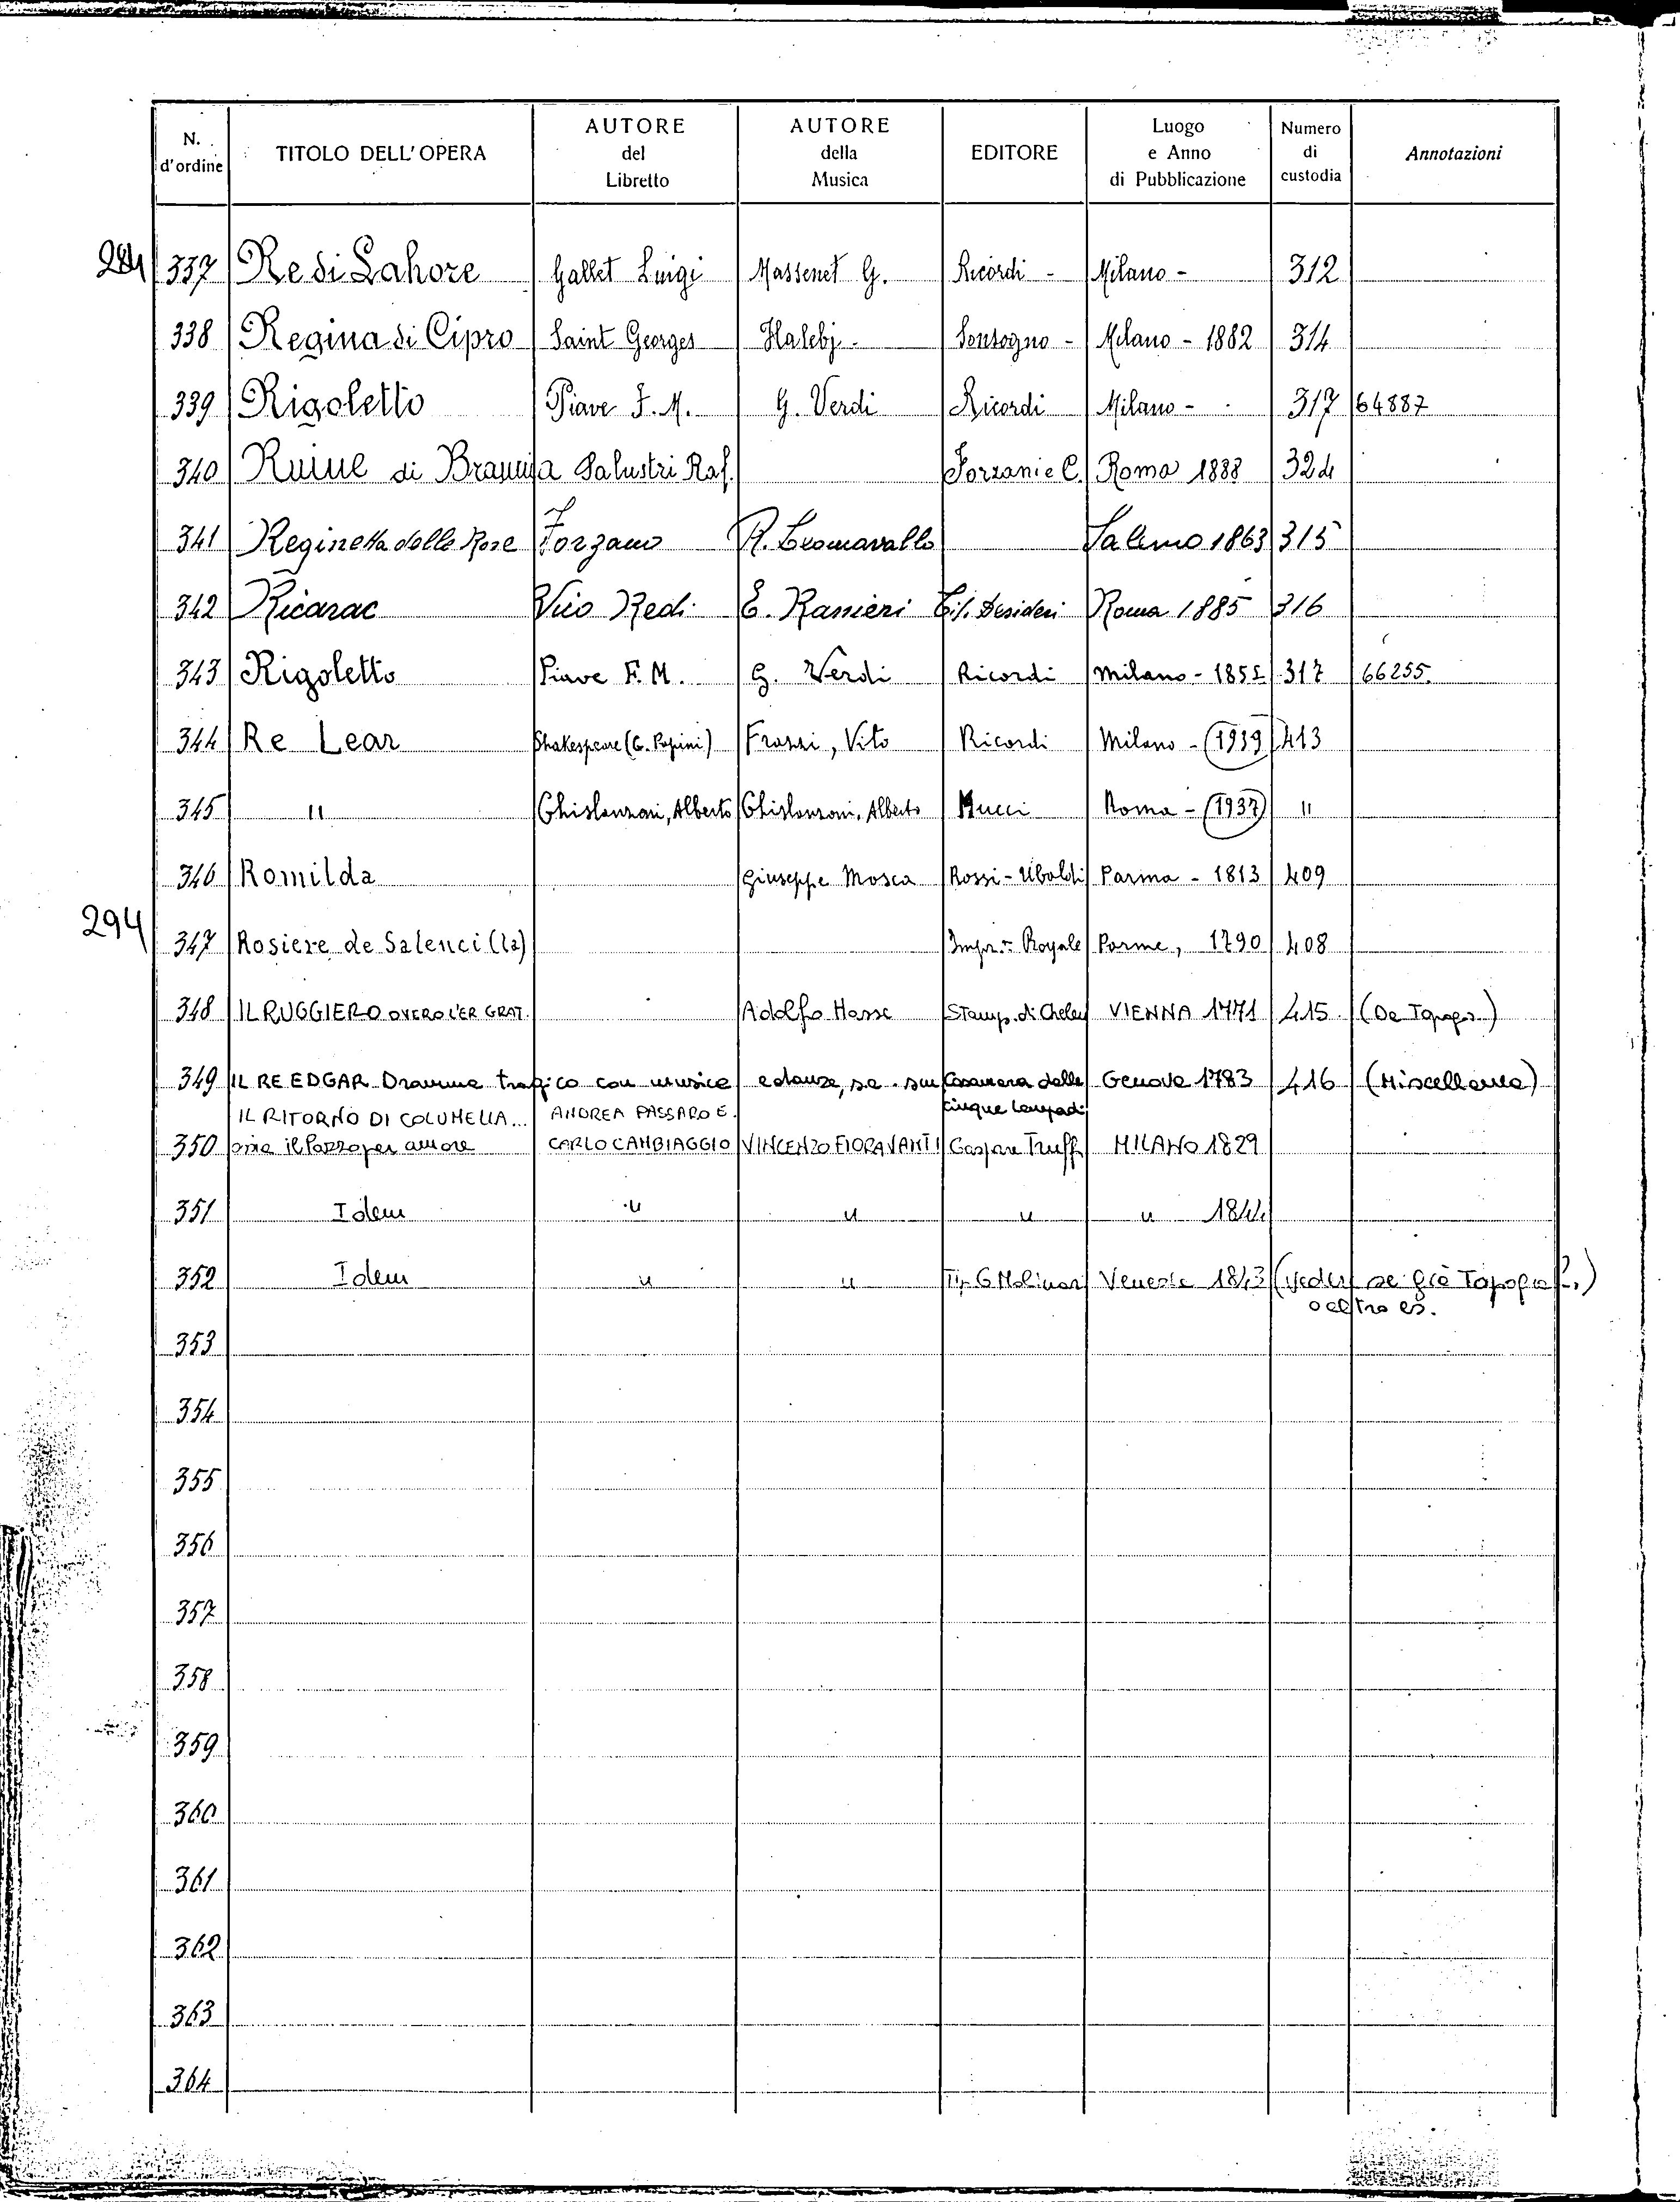 N. d'ordine TITOLO DELL'OPERA AUTORE del Libretto AUTORE della Musica EDITORE Luogo e Anno di Pubblicazione Numero di custodia Annotazioni
284 337 Re di Lahore Gallet Luigi Massenet G. Ricordi - Milano - 312
338 Regina di Cipro Saint Georges Halebj - Sonzogno - Milano - 1882 314
339 Rigoletto Piave F. M. G. Verdi Ricordi Milano - 317 64887
340 Ruine di Bramma Salustri Raf. Forzani e C. Roma 1888 324
341 Reginetta delle Rose Forzano R. Leoncavallo Salerno 1863 315
342 Ricarac Vico Redi E. Ranieri Desideri Roma 1885 316
343 Rigoletto Piave F. M. G. Verdi Ricordi Milano - 1851 317 66255
344 Re Lear Shakespeare (G. Papini) Frazzi, Vito Ricordi Milano - (1939) 413
345 " Ghislanzoni, Alberto Ghislanzoni, Alberto Mucci Roma - (1937) "
346 Romilda Giuseppe Mosca Rossi - Ubaldi Parma - 1813 409
294 347 Rosiere de Salenci (la) Impr. Royale Parme, 1790 408
348 IL RUGGIERO OVERO L'ER GRAT. Adolfo Hasse Stamp. di Ghelen VIENNA 1771 415 (De Topogr.)
349 IL RE EDGAR Dramma tragico con musica e danze, Casamara dalle Genova 1783 416 (Miscellanea)
cinque lampadi
IL RITORNO DI COLUMELLA... ANDREA PASSARO E.
350 osia il Pazzo per amore CARLO CAMBIAGGIO VINCENZO FIORAVANTI Gaspare Truffi MILANO 1829
351 Idem " " " " 1844
352 Idem " " Tip. G. Molinari Venezia 1843 (veder se già Topogra
o altro es.
353
354
355
356
357
358
359
360
361
362
363
364